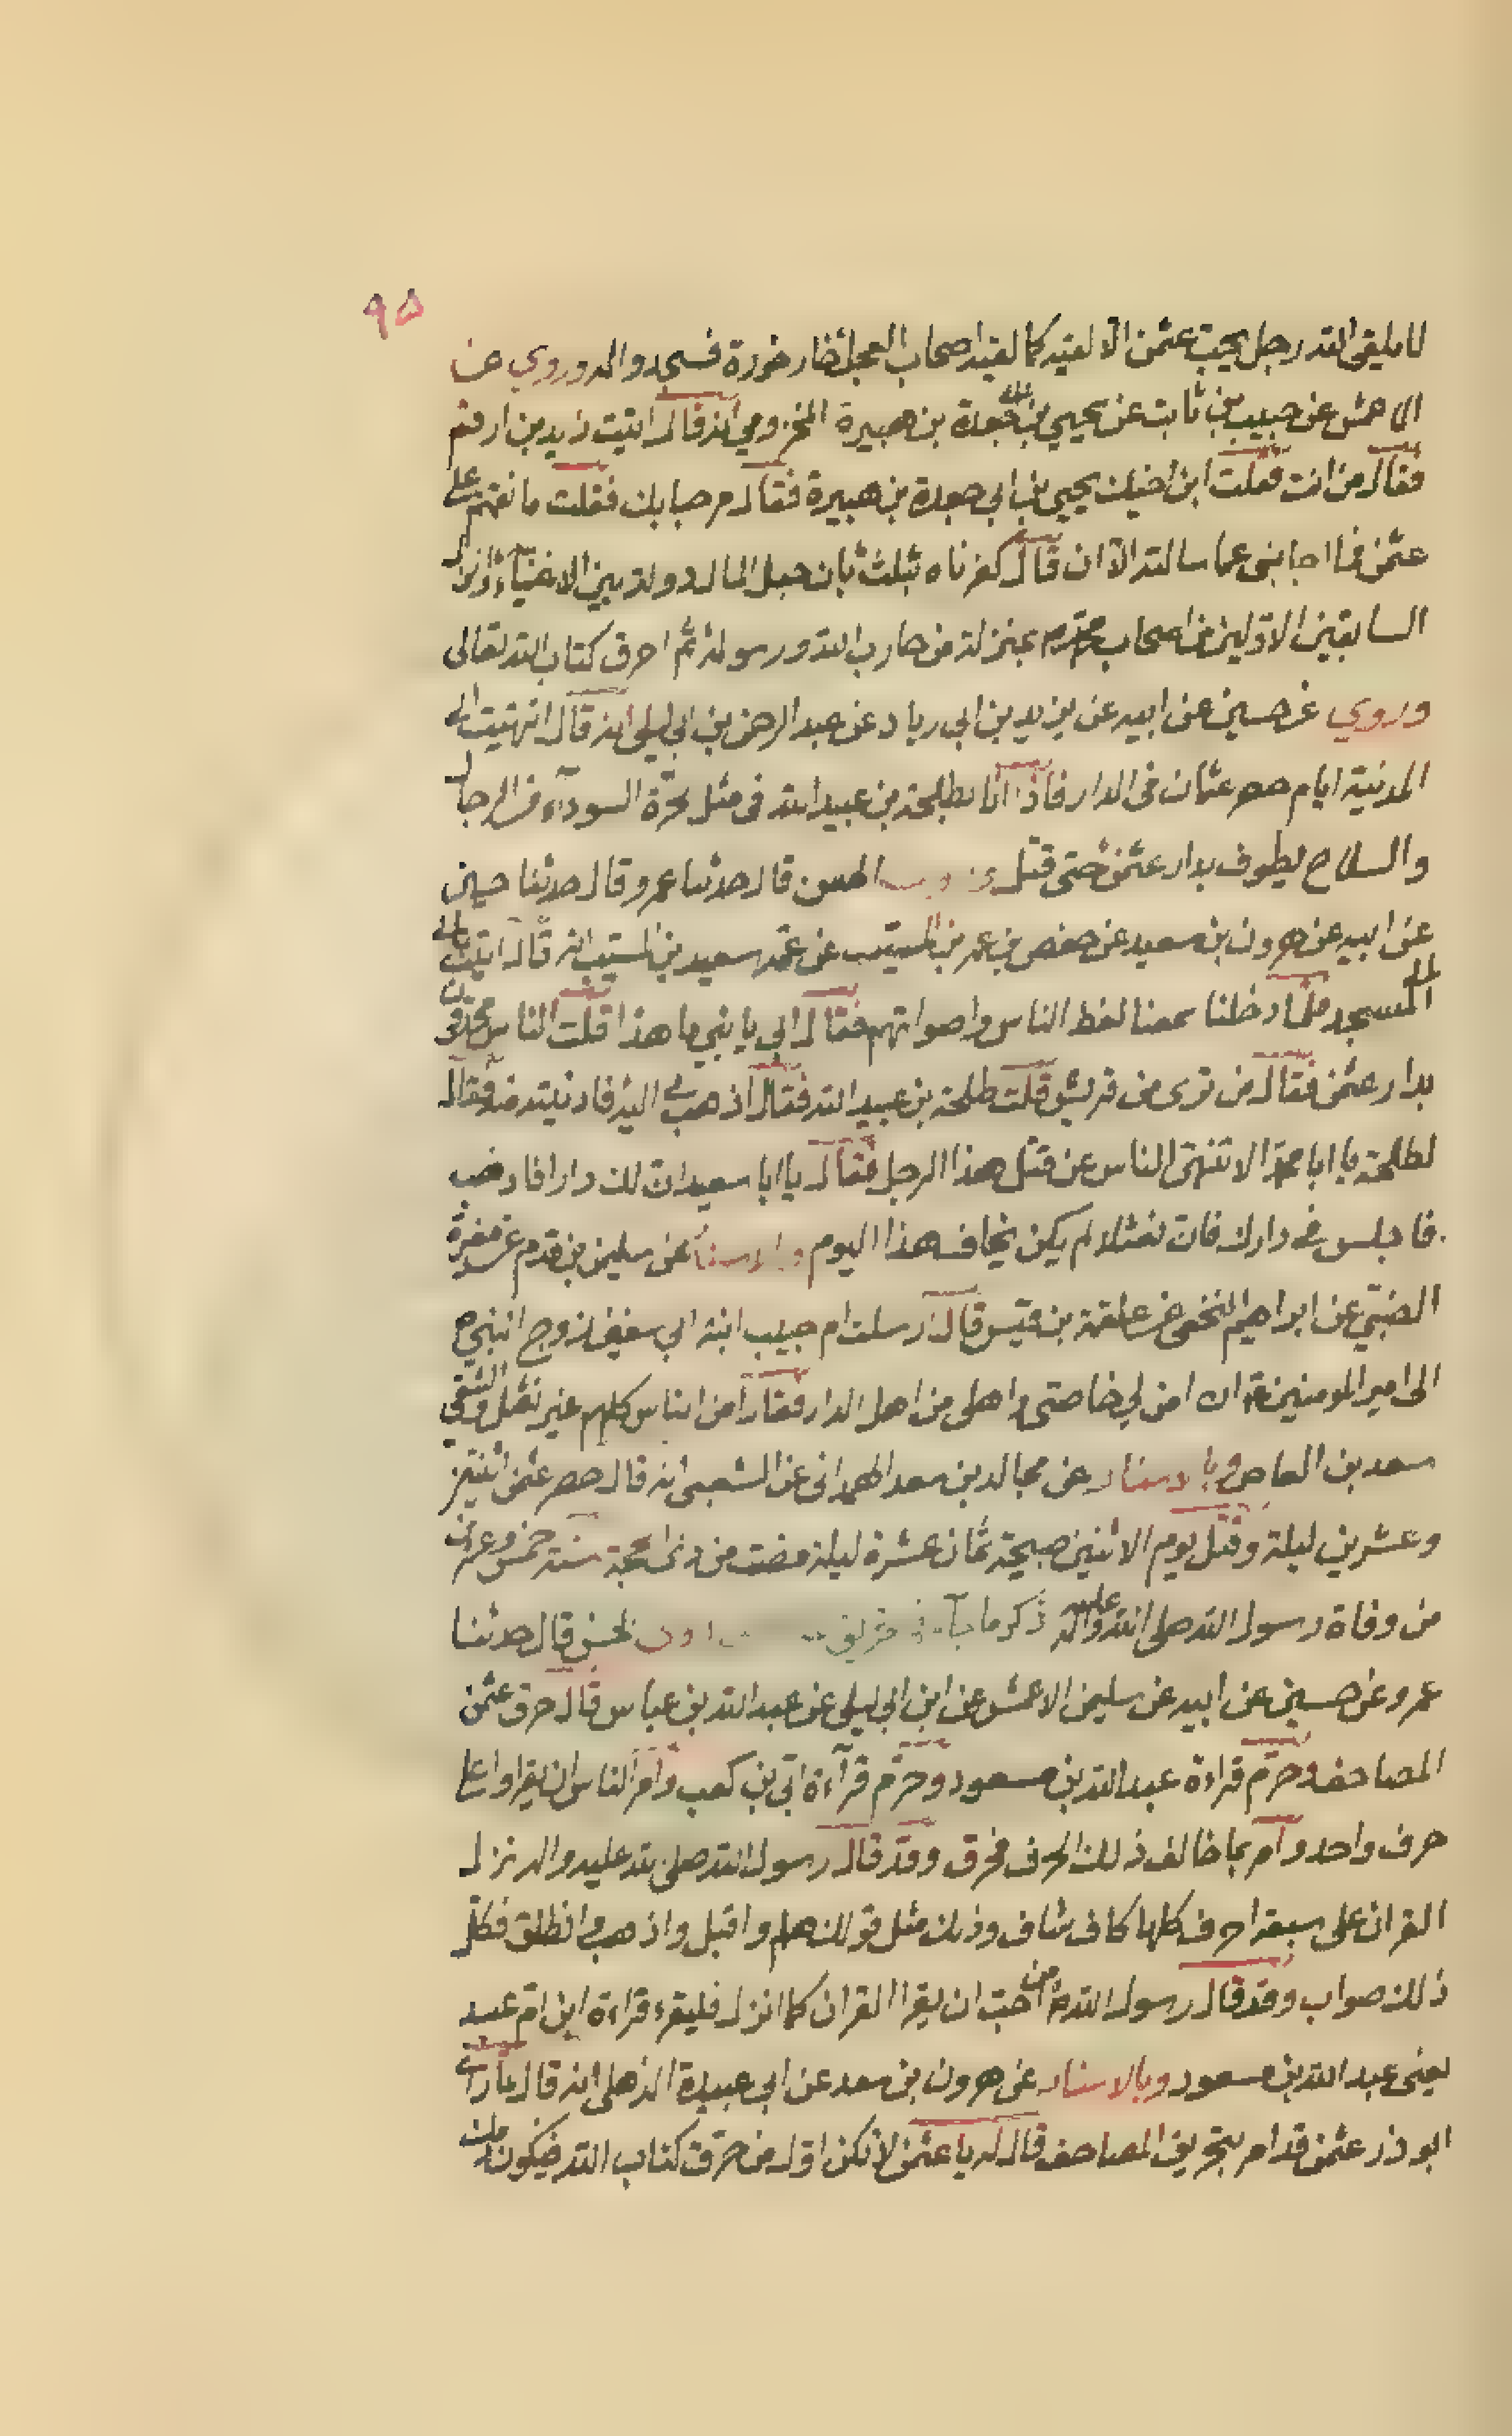 ٩٥
لا يلقى الله رجل يحب عثمن الا لقيه كما لقيه اصحاب العجل فخار خوره فسجدوا له وروي عن
الاعمش عن حبيب بن ثابت عن يحيي بن جعدة بن هبيرة المخزومي انه قال اتيت زيد بن ارقم
فقال من انت فقلت ابن اخيك يحيي بن ابي جعدة بن هبيرة فقال مرحبا بك فقلت ما نقمتم على
عثمن فما اجابني عما سالته الا ان قال كفرناه بثلث بان جعل المال دولة بين الاغنياء وانزل
السابقين الاولين من اصحاب محمد ص بمنزلة من حارب الله ورسوله ثم احرق كتاب الله تعالى
وروي عن حسين عن ابيه عن يزيد بن ابي زياد عن عبد الرحمن بن ابي ليلى انه قال انتهيت الى
المدينة ايام حصر عثمان في الدار فاذا انا بطلحة بن عبيد الله في مثل الحرة السوداء من الرجال
والسلاح يطوف بدار عثمن حتى قتل قال حدثنا عمرو قال حدثنا حسين
عن ابيه عن هرون بن سعيد عن حفص بن عمر بن المسيب عن عمه سعيد بن المسيب انه قال اتيت
المسجد فلما دخلنا سمعنا لغط الناس واصواتهم فقال ابي يا بني ما هذا قلت الناس محدقون
بدار عثمن فقال من ترى من قريش قلت طلحة بن عبيد الله فقال اذهب بي اليه فادنيته منه فقال
لطلحة يا ابا محمد الا تنهى الناس عن قتل هذا الرجل فقال يا ابا سعيد ان لك دارا فاذهب
فاجلس في دارك فان نعثلا لم يكن يخاف هذا اليوم وبالاسناد عن سليمن بن قدم عن مغيرة
الضبي عن ابراهيم النخعي عن علقمة بن قيس قال ارسلت ام حبيب ابنة ابي سفين زوج النبي ص
الى امير المومنين ع ان امن لي خاصتي واهلي من اهل الدار فقال امن الناس كلهم غير نعثل والشقي
سعد بن العاص وبالاسناد عن مجالد بن سعد الهمداني عن الشعبي انه قال حصر عثمن اثنتين
وعشرين ليلة وقتل يوم الاثنين صبيحة ثمان عشرة ليلة مضت من ذي الحجة سنة خمس وعشرين
من وفاة رسول الله صلى الله عليه واله ذكر ما جآء في تحريق الحسن قال حدثنا
عمرو عن حسين عن ابيه عن سليمن الاعمش عن ابن ابي ليلى عن عبد الله بن عباس قال حرق عثمن
المصاحف وحرم قراءة عبد الله بن مسعود وحرم قرآءة ابي بن كعب وامر الناس ان يقراوا على
حرف واحد وامر بما خالف ذلك الحرف فحرق وقد قال رسول الله صلى الله عليه واله نزل
القران على سبعة احرف كلها كاف شاف وذلك مثل قولك هلم واقبل واذهب وانطلق فكل
ذلك صواب وقد قال رسول الله ص من احب ان يقرا القران كما انزل فليقرء قراءة ابن ام عبد
يعني عبد الله بن مسعود وبالاسناد عن هرون بن سعد عن ابي عبيدة الذهلي انه قال لما راى
ابو ذر عثمن قد امر بتحريق المصاحف قال له يا عثمن لا تكن اول من حرق كتاب الله فيكون